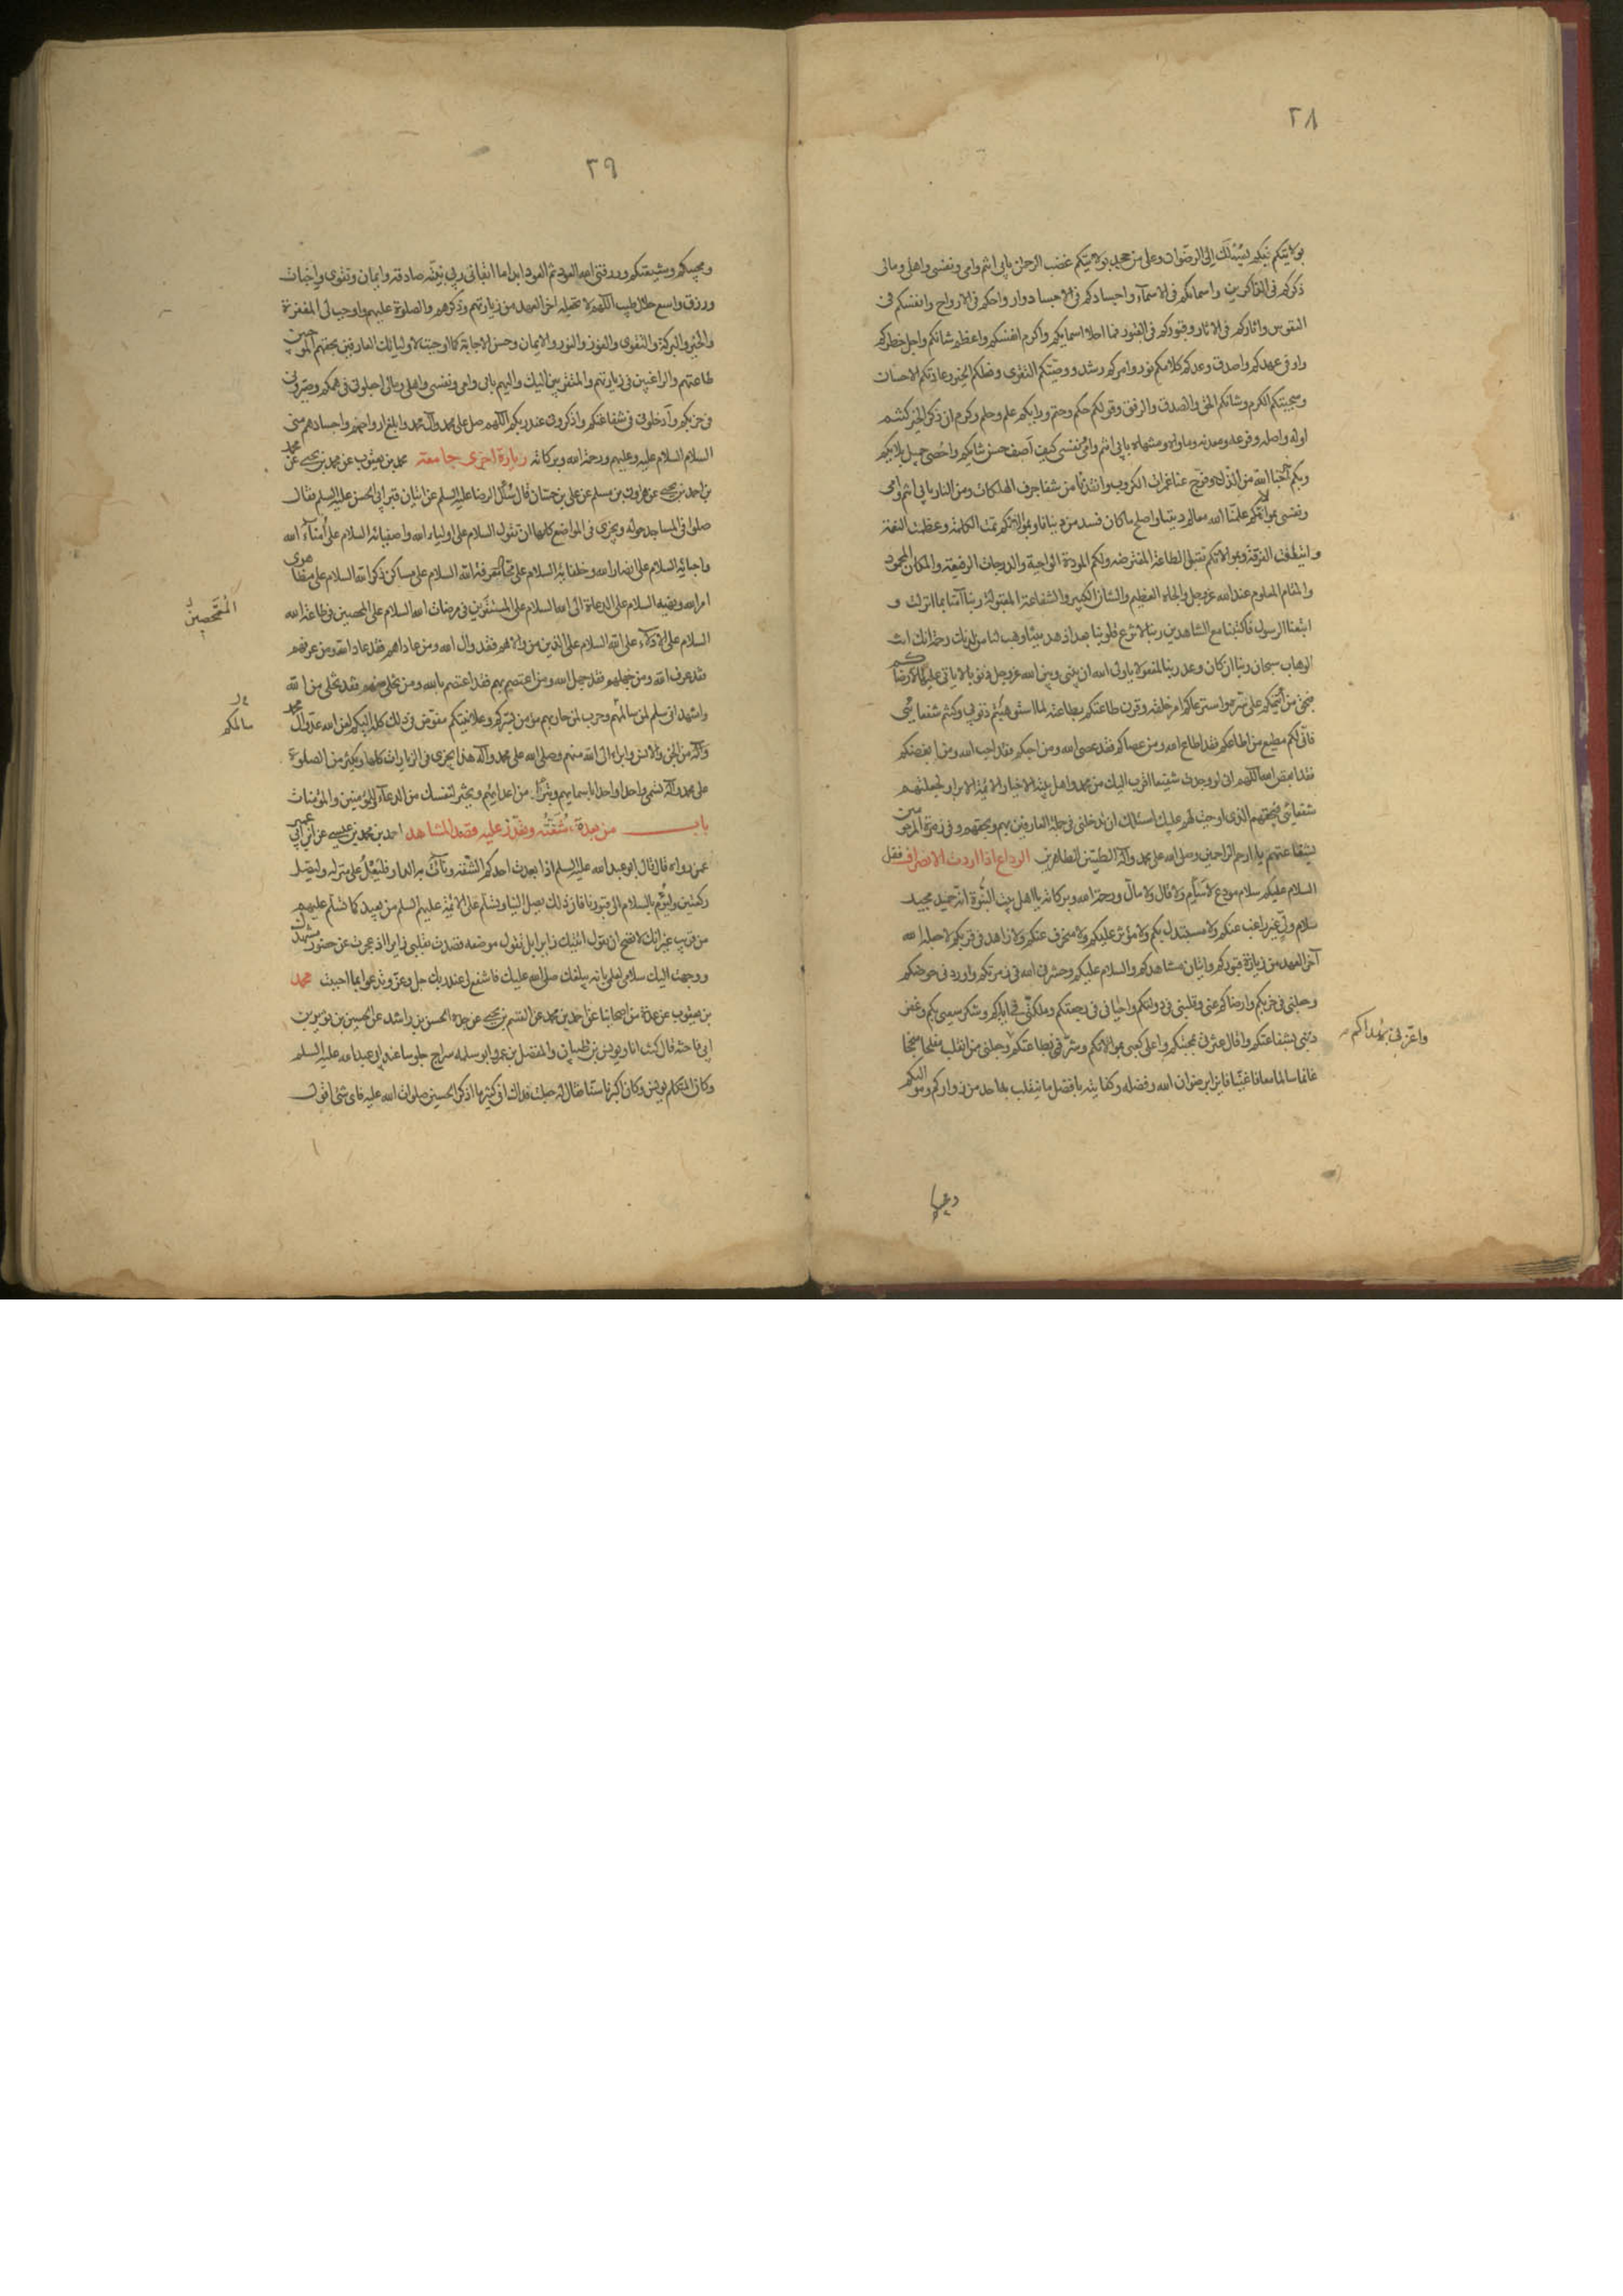 ٢٨
بولايتكم بكم يسلك الى الرضوان وعلى من جحد ولايتكم غضب الرحمن بابي انتم وامي ونفسي واهلي ومالي
ذكركم في الذاكرين واسماءكم في الاسماء واجسادكم في الاجساد وارواحكم في الارواح وانفسكم في
النفوس واثاركم في الاثار وقبوركم في القبور فما احلا اسمائكم واكرم انفسكم واعظم شانكم واجل خطركم
واوفى عهدكم واصدق وعدكم كلامكم نور وامركم رشد ووصيتكم التقوى وفعلكم الخير وعادتكم الاحسان
وسجيتكم الكرم وشانكم الحق والصدق والرفق وقولكم حكم وحتم ورايكم علم وحلم وكرم ان ذكر الخير كنتم
اوله واصله وفرعه ومعدنه وماواه ومنتهاه بابي انتم وامي ونفسي كيف اصف حسن ثنائكم واحصي جميل بلائكم
وبكم اخرجنا الله من الذل وفرج عنا غمرات الكروب وانقذنا من شفا جرف الهلكات ومن النار بابي انتم وامي
ونفسي بموالاتكم علمنا الله معالم ديننا واصلح ما كان فسد من دنيانا وبموالاتكم تمت الكلمة وعظمت النعمة
وايتلفت الفرقة وبموالاتكم تقبل الطاعة المفترضة ولكم المودة الواجبة والدرجات الرفيعة والمكان المحمود
والمقام المعلوم عند الله عز وجل والجاه العظيم والشان الكبير والشفاعة المقبولة ربنا آمنا بما انزلت و
اتبعنا الرسول فاكتبنا مع الشاهدين ربنا لا تزغ قلوبنا بعد اذ هديتنا وهب لنا من لدنك رحمة انك انت
الوهاب سبحان ربنا ان كان وعد ربنا لمفعولا يا ولي الله ان بيني وبين الله عز وجل ذنوبا لا ياتي عليها الا رضاكم
فبحق من ائتمنكم على سره واسترعاكم امر خلقه وقرن طاعتكم بطاعته لما استوهبتم ذنوبي وكنتم شفعائي
فاني لكم مطيع من اطاعكم فقد اطاع الله ومن عصاكم فقد عصى الله ومن احبكم فقد احب الله ومن ابغضكم
فقد ابغض الله اللهم اني لو وجدت شفيعا اقرب اليك من محمد واهل بيته الاخيار الائمة الابرار لجعلتهم
شفعائي فبحقهم الذي اوجبت لهم عليك اسئلك ان تدخلني في جملة العارفين بهم وبحقهم وفي زمرة المرحومين
بشفاعتهم يا ارحم الراحمين وصلى الله على محمد وآله الطيبين الطاهرين الوداع اذا اردت الانصراف فقل
السلام عليكم سلام مودع لا سئم ولا قال ولا مال ورحمة الله وبركاته يا اهل بيت النبوة انه حميد مجيد
سلام ولي غير راغب عنكم ولا مستبدل بكم ولا مؤثر عليكم ولا منحرف عنكم ولا زاهد في قربكم لا جعله الله
آخر العهد من زيارة قبوركم واتيان مشاهدكم والسلام عليكم وحشرني الله في زمرتكم واوردني حوضكم
وجعلني في حزبكم وارضاكم عني وقلبني في دولتكم واحياني في رجعتكم وملكني في ايامكم وشكر سعيي بكم وغفر
ذنبي بشفاعتكم واقال عثرتي بمحبتكم واعلى كعبي بموالاتكم وشرفني بطاعتكم وجعلني من انقلب مفلحا منجحا
واعزني بهداكم
غانما سالما معافا غنيا فايزا برضوان الله وفضله وكفايته بافضل ما ينقلب به احد من زواركم ومواليكم
٢٩
ومحبيكم وشيعتكم ورزقني الله العود ثم العود ابدا ما ابقاني ربي بنية صادقة وايمان وتقوى واخبات
ورزق واسع حلال طيب اللهم لا تجعله اخر العهد من زيارتهم وذكرهم والصلوة عليهم واوجب لي المغفرة
والخير والبركة والتقوى والفوز والنور والايمان وحسن الاجابة كما اوجبت لاوليائك العارفين بحقهم الموجبين
طاعتهم والراغبين في زيارتهم والمتقربين اليك واليهم بابي وامي ونفسي واهلي ومالي اجعلوني في همكم وصيروني
في حزبكم وادخلوني في شفاعتكم واذكروني عند ربكم اللهم صل على محمد وآل محمد وابلغ ارواحهم واجسادهم مني
السلام السلام عليه وعليهم ورحمة الله وبركاته زيارة اخرى جامعة محمد بن يعقوب عن محمد بن يحيى عن محمد
بن احمد بن يحيى عن هارون بن مسلم عن علي بن حسان قال سئل الرضا عليه السلم عن اتيان قبر ابي الحسن عليه السلم فقال
صلوا في المساجد حوله ويجزي في المواضع كلها ان تقول السلام على اولياء الله واصفيائه السلام على امناء الله
واحبائه السلام على انصار الله وخلفائه السلام على محال معرفة الله السلام على مساكن ذكر الله السلام على مظاهري
امر الله ونهيه السلام على الدعاة الى الله السلام على المستقرين في مرضات الله السلام على المحصين في طاعة الله
المُمَحَّصين
السلام على الادلاء على الله السلام على الذين من والاهم فقد والى الله ومن عاداهم فقد عاد الله ومن عرفهم
فقد عرف الله ومن جهلهم فقد جهل الله ومن اعتصم بهم فقد اعتصم بالله ومن تخلى منهم فقد تخلى من الله
واشهد اني سلم لمن سالمتم وحرب لمن حاربتم مؤمن بسركم وعلانيتكم مفوض في ذلك كله اليكم لعن الله عدو آل محمد
سالمكم
من الجن والانس وابراء الى الله منهم وصلى الله على محمد وآله هذا يجزي في الزيارات كلها وتكثر من الصلوة
على محمد وآله تسمي واحدا واحدا باسمائهم وتبرأ من اعدائهم وتخير لنفسك من الدعاء وللمؤمنين والمؤمنات
باب من بعدت شقته وتعذر عليه قصد المشاهد احمد بن محمد بن عيسى عن ابن ابي عمير
عمن رواه قال قال ابو عبد الله عليه السلم اذا بعدت احدكم الشقة ونأت به الدار فليعل على منزله وليصل
ركعتين وليؤم بالسلام الى قبورنا فان ذلك يصل الينا وتسلم على الائمة عليهم السلم من بعيد كما تسلم عليهم
من قريب غير انك لا تصح ان تقول اتيتك زايرا بل تقول موضعه قصدت بقلبي زايرا اذ عجزت عن حضور مشهدك
ووجهت اليك سلامي لعلمي بانه يبلغك صلى الله عليك فاشفع لي عند ربك جل وعز وتدعو بما احببت محمد
بن يعقوب عن عدة من اصحابنا عن احمد بن محمد عن القسم بن يحيى عن جده الحسن بن راشد عن الحسين بن ثوير بن
ابي فاخته قال كنت انا ويونس بن ظبيان والمفضل بن عمر وابو سلمه سراج جلوسا عند ابي عبد الله عليه السلم
وكان المتكلم يونس وكان اكبرنا سنا فقال له جعلت فداك اني كثيرا ما اذكر الحسين صلوات الله عليه فاي شئ اقول